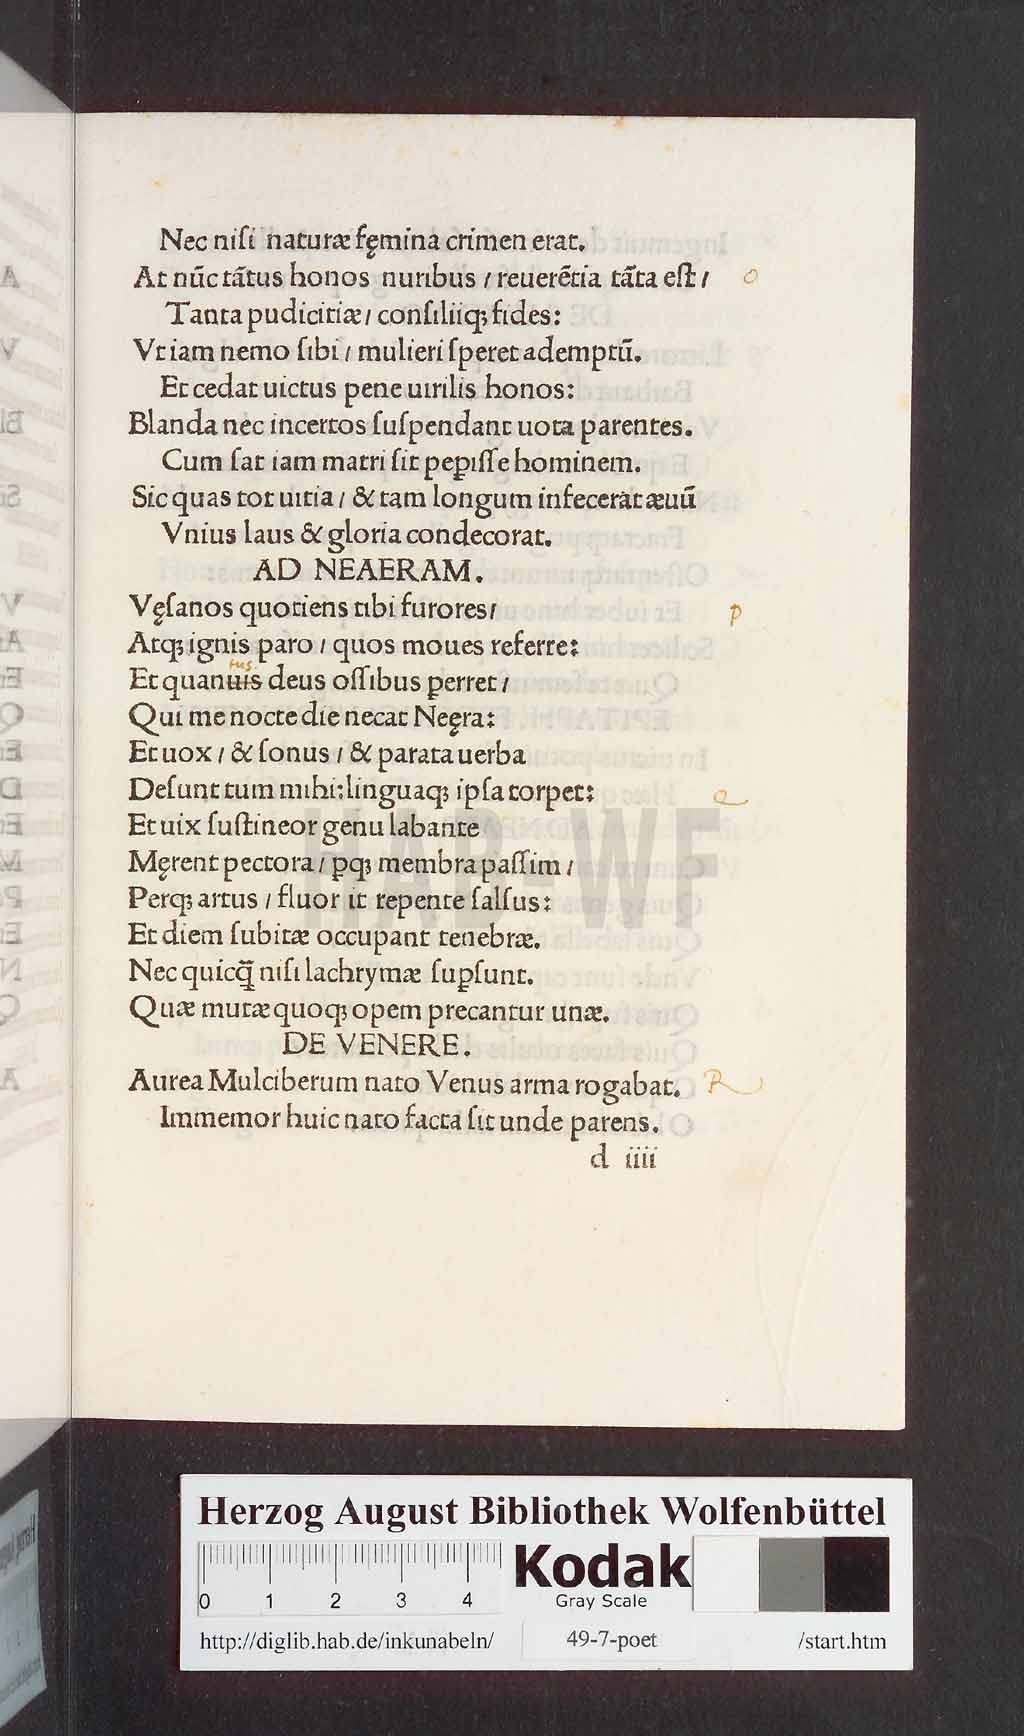 Nec niſi naturæ fęmina crimen erat.
At nūc tātus honos nuribus / reuerētia tāta eſt / o
Tanta pudicitiæ / conſiliiqꝫ fides:
Vt iam nemo ſibi / mulieri ſperet ademptū.
Et cedat uictus pene uirilis honos:
Blanda nec incertos ſuſpendant uota parentes.
Cum ſat iam matri ſit peꝑiſſe hominem.
Sic quas tot uitia / & tam longum infecerat æuū
Vnius laus & gloria condecorat.
AD NEAERAM.
Vęſanos quotiens tibi furores / p
Atqꝫ ignis paro / quos moues referre:
tus
Et quanuis deus oſſibus ꝑerret /
Qui me nocte die necat Neęra:
Et uox / & ſonus / & parata uerba
Deſunt tum mihi: linguaqꝫ ipſa torpet: Q
Et uix ſuſtineor genu labante
Męrent pectora / ꝑqꝫ membra paſſim /
Perqꝫ artus / fluor it repente ſalſus:
Et diem ſubitæ occupant tenebræ.
Nec quicq̄ niſi lachrymæ ſuꝑſunt.
Quæ mutæ quoqꝫ opem precantur unæ.
DE VENERE.
Aurea Mulciberum nato Venus arma rogabat. R
Immemor huic nato facta ſit unde parens.
d iiii
HAB-WF
Herzog August Bibliothek Wolfenbüttel
Kodak
Gray Scale
0 1 2 3 4
http://diglib.hab.de/inkunabeln/ 49-7-poet /start.htm